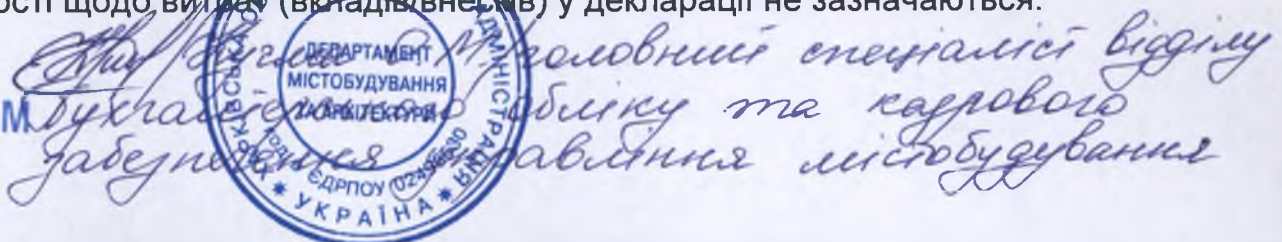 ості щодо витрат (вкладів/внесків) у декларації не зазначаються.
головний спеціаліст відділу
бухгалтерського обліку та кадрового
забезпечення управління містобудування
ДЕПАРТАМЕНТ
МІСТОБУДУВАННЯ
ТА АРХІТЕКТУРИ
АДМІНІСТРАЦІЯ
ЄДРПОУ
УКРАЇНА
М